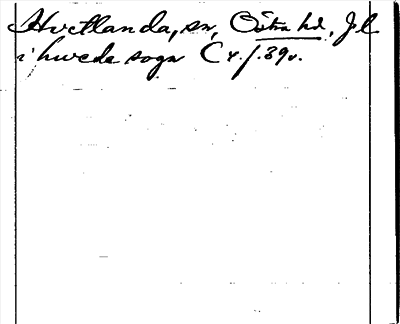 Hvetlanda, sn, Östra hd, Jl
i hwede sogn C 4. f. 39v.